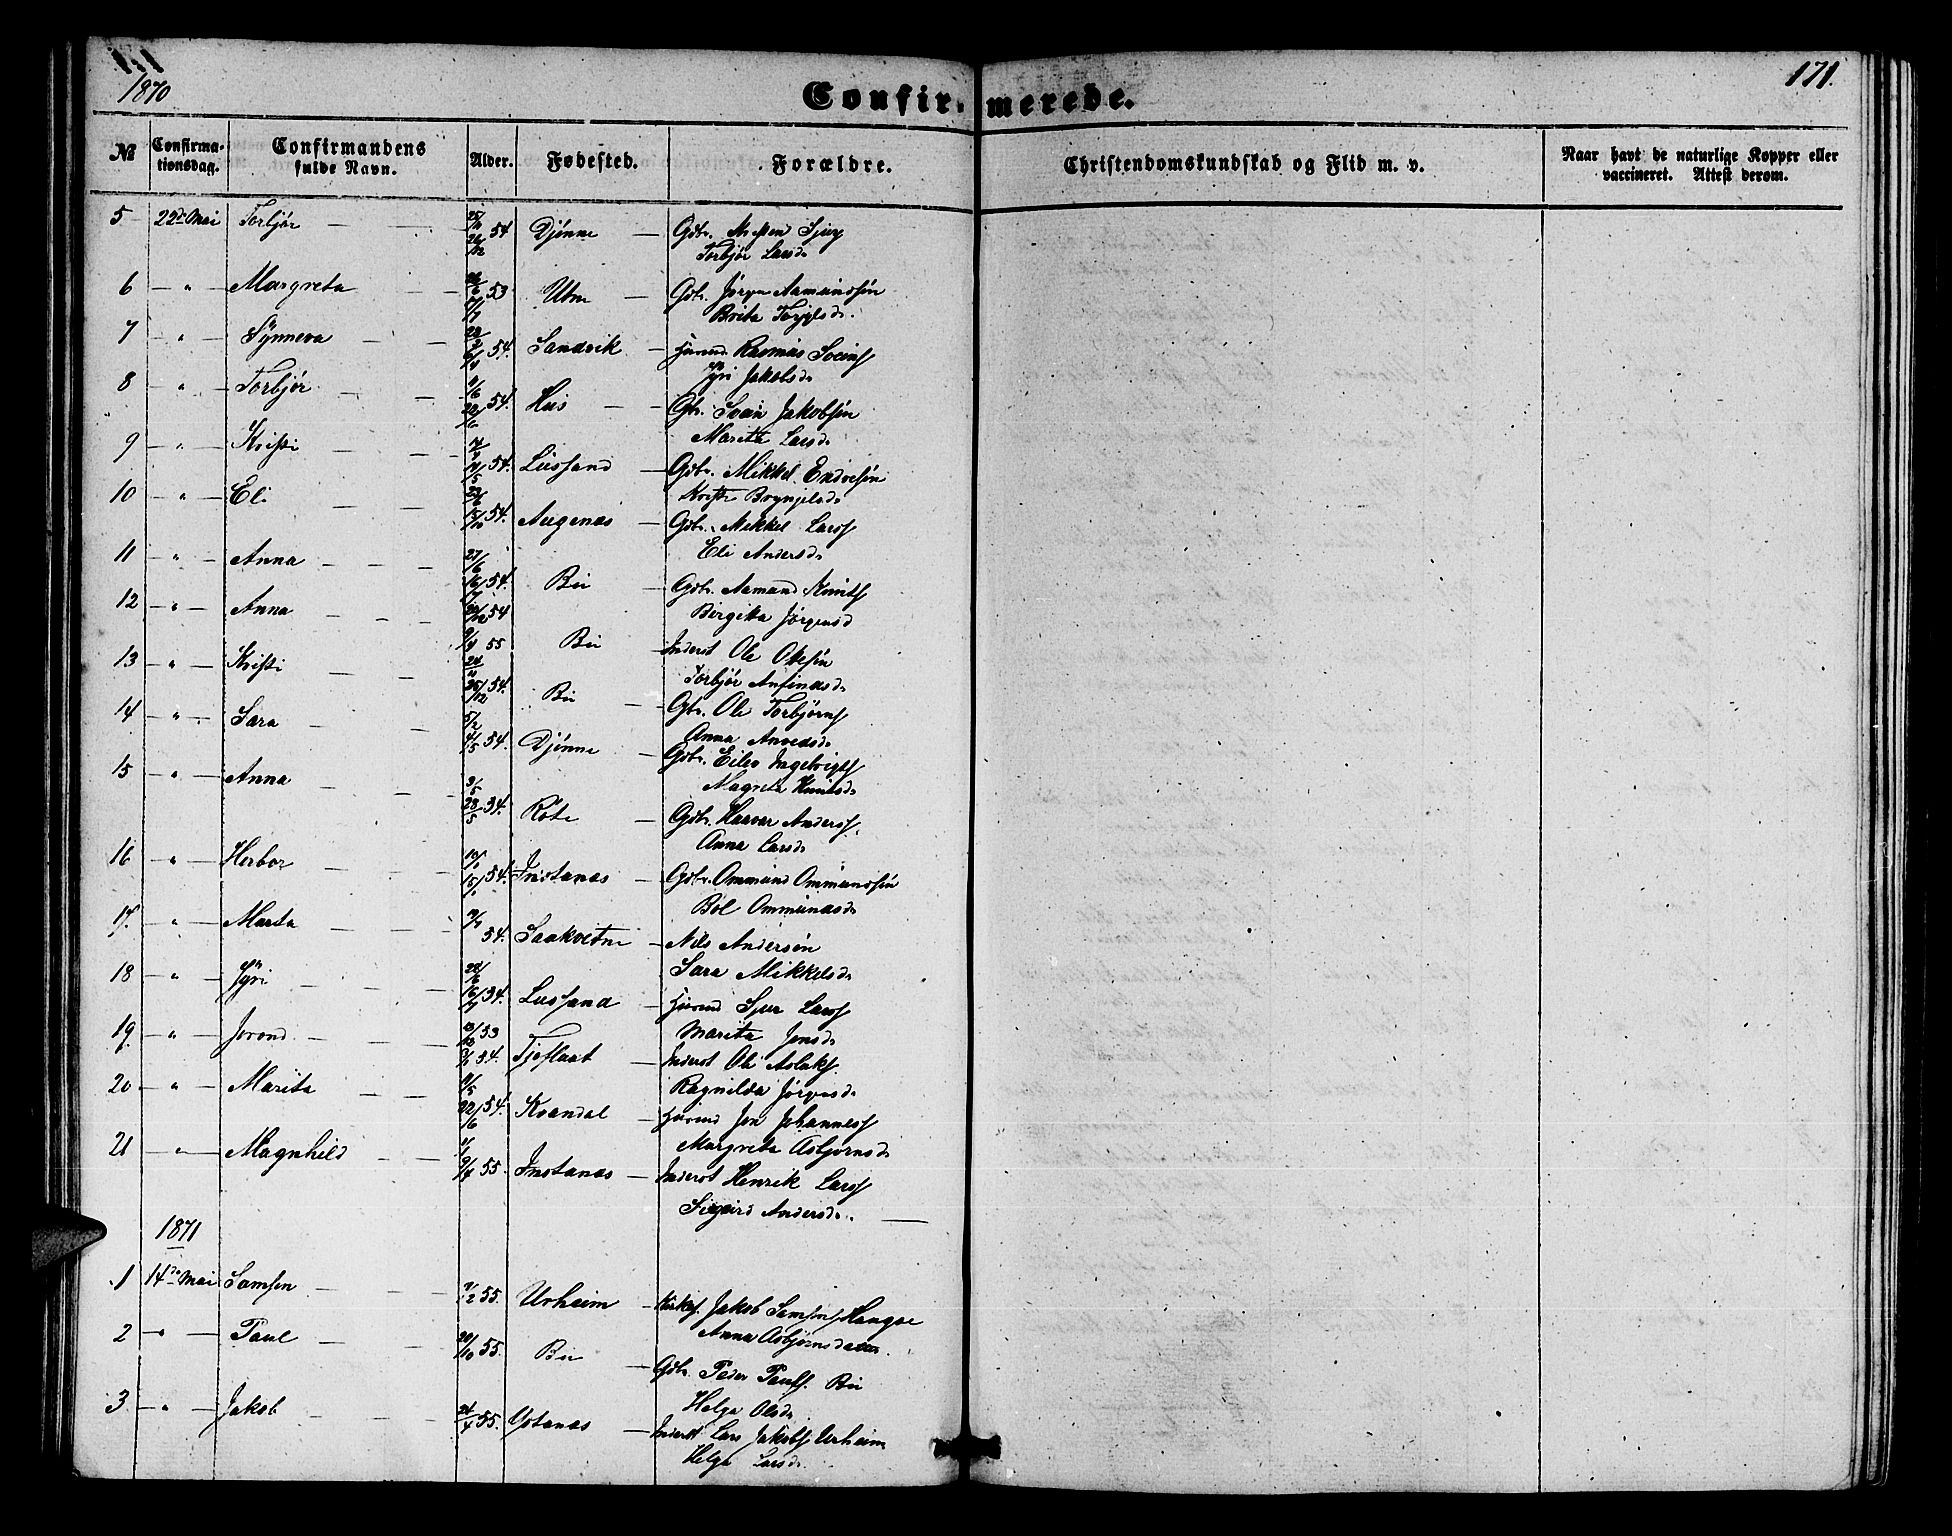 1870
Confirmerede.
171.
№
Confirmationsdag.
Confirmandens fulde Navn.
Alder.
Fødested.
Forældre.
Christendomskundskab og Flid m. v.
Naar havt de naturlige Kopper eller vaccineret. Attest derom.
5 22de Mai Torbjør 54 Djønne Gbr.
Torbjør Larsd.
6 " Margreta 53 Utne Gbr. Jørgen Aamundsøn
Brita
7 " Synneva 54. Sandvik Husmd. Rasmus Sveins
Jyri Jakobsd.
8 " Torbjør 54. Hus Gbr. Svein Jakobsøn
Marita Larsd.
9 " Kristi 54. Lussand Gbr. Mikkel Endresøn
Kristi Brynjelsd.
10 " Eli 54. Augenæs Gbr. Mikkel Larss
Eli Andersd.
11 " Anna 54. Bu Gbr. Aamund Knuts
Bergitta Jørgensd
12 " Anna 54 55 Bu Inderst Ole Olesøn
Torbjør Anfinnsd.
13 " Kristi 54. Bu Gbr. Ole Torbjørns
Anna
14 " Sara 54. Djønne Gbr. Eilev Ingebrigts
Magreta Knutsd.
15 " Anna 54. Rote Gbr. Havar Anders
Anna Larsd.
16 " Herbor 54. Instanæs Gbr. Ommund Ommundsøn
Bol Ommundsd.
17. " Marta 54. Saakvitne Nils Andersøn
Sara Mikkelsd.
18 " Jyri 54. Lussand Husmd Sjur Larss
Marita Jonsd.
19. " Jorond 53 54. Tjoflaat Inderst Ole Aslaks.
Ragnilda Jørgensd.
20 " Marita 54. Kvandal Husmd Jon Johanness
Margreta Asbjørnsd.
21 " Magnhild 55. Instanæs Inderst Henrik Larss
Sigrid Andersd.
1871
1 14de Mai Samson 55. Urheim Kirkes. Jakob Samsons Hangse
Anna Asbjørnsdatter.
2 " Paul 55. Bu Gbr. Peder Pauls. Bu
Helga Olsd.
3 " Jakob 55. Ystanæs Inderst Lars Jakobs Urheim
Helga Larsd.